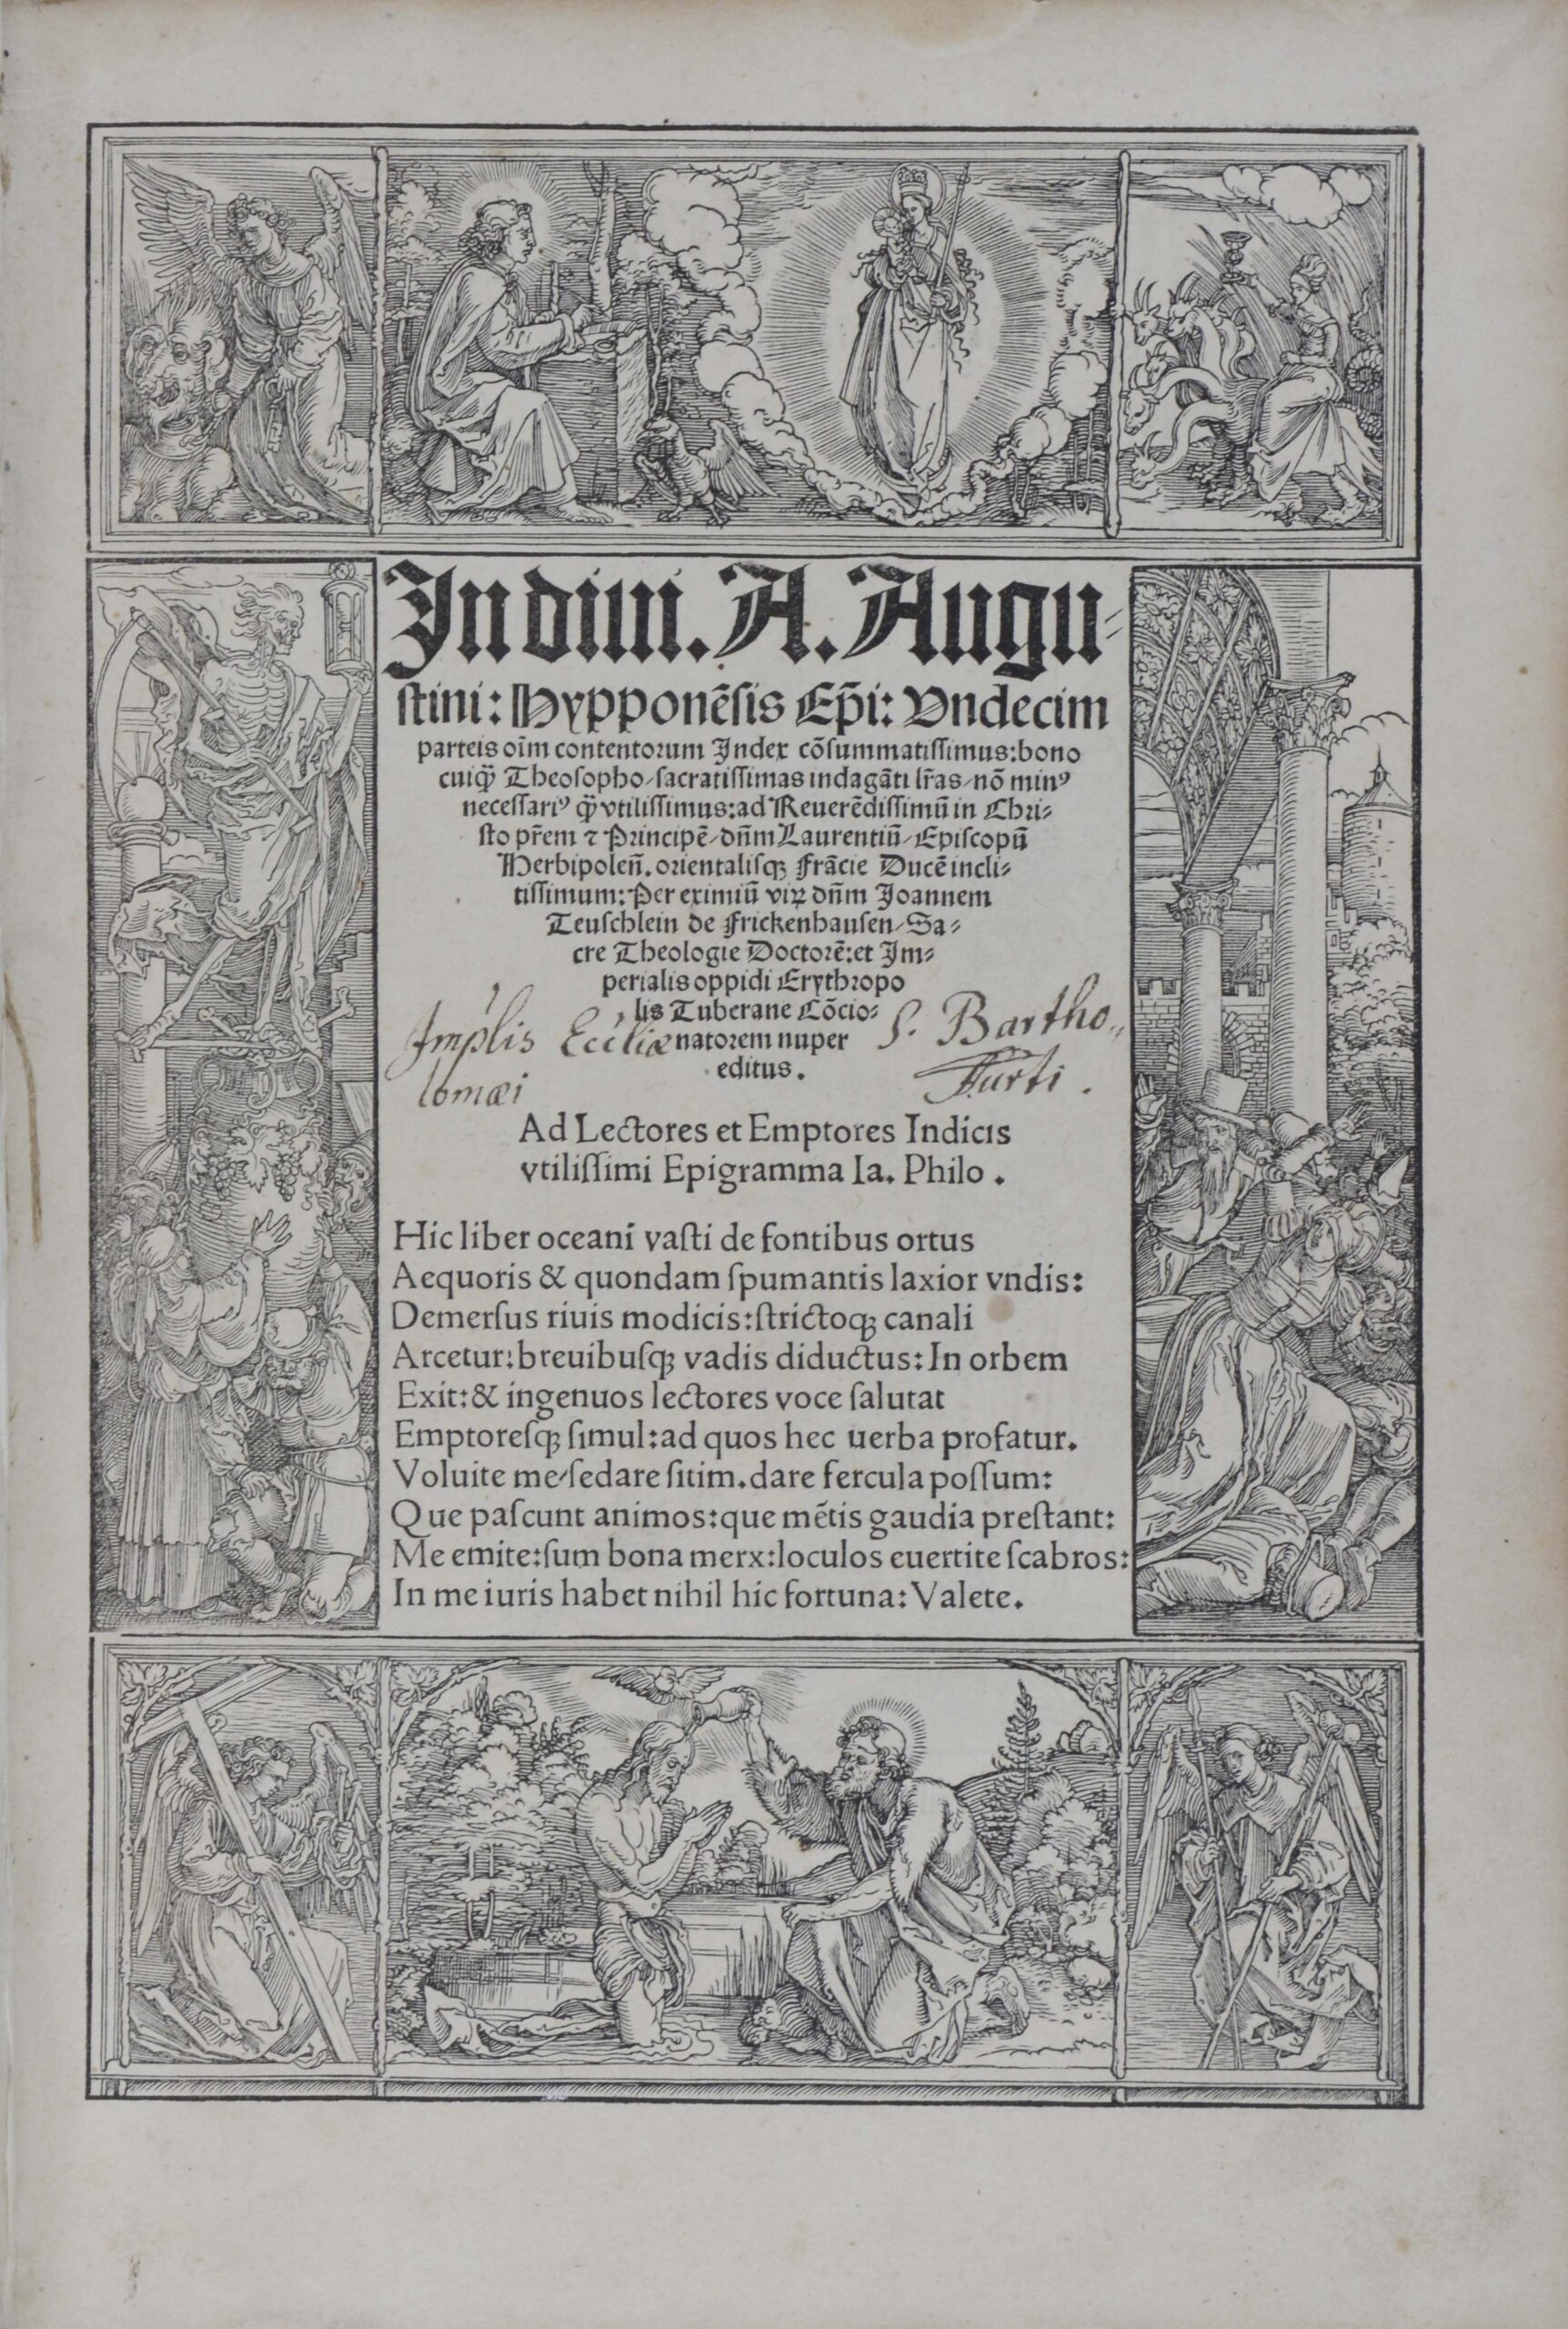 In diui. A. Augu⸗
ſtini: Hypponēſis Ep̄i: Vndecim
parteis oīm contentorum Index cōſummatiſſimus: bono
cuiq̃ Theoſopho / ſacratiſſimas indagāti lr̄as / nō minꝰ
neceſſariꝰ q̃ vtiliſſimus: ad Reuerēdiſſimū in Chri⸗
ſto pr̄em ⁊ Principē / dn̄m Laurentiū / Epiſcopū
Herbipoleñ. orientaliſqꝫ Frācie Ducē incli⸗
tiſſimum: Per eximiū viꝝ dn̄m Joannem
Teuſchlein de Frickenhauſen / Sa⸗
cre Theologie Doctorē: et Im⸗
perialis oppidi Erythropo
lis Tuberane Cōcio⸗
natorem nuper
editus.
Implis Eccliæ S. Bartho„
lomæi Furti.
Ad Lectores et Emptores Indicis
vtiliſſimi Epigramma Ia. Philo.
Hic liber oceani vaſti de fontibus ortus
Aequoris & quondam ſpumantis laxior vndis:
Demerſus riuis modicis: ſtrictoqꝫ canali
Arcetur: breuibuſqꝫ vadis diductus: In orbem
Exit: & ingenuos lectores voce ſalutat
Emptoreſqꝫ ſimul: ad quos hec uerba profatur.
Voluite me / ſedare ſitim. dare fercula poſſum:
Que paſcunt animos: que mētis gaudia preſtant:
Me emite: ſum bona merx: loculos euertite ſcabros:
In me iuris habet nihil hic fortuna: Valete.